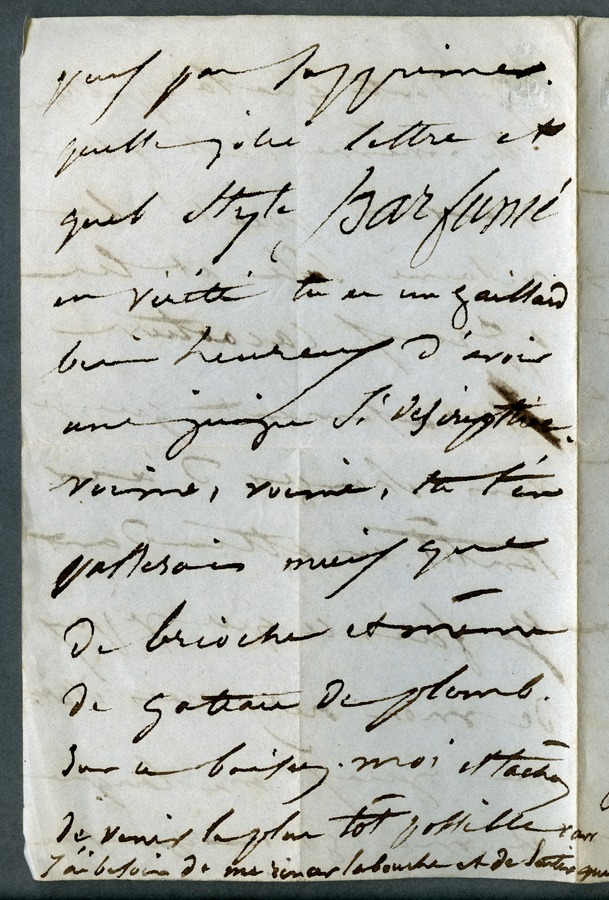 peux pas supprimer.
quelle jolie lettre et
quel style Parfumé
en vérité tu es un gaillard
bien heureux d'avoir
une si descriptive.
voime, voime, tu t'en
passerais mieux que
de brioche et même
de gateau de plomb.
sur ce baisez moi et tachez
de venir le plus tôt possible car
j'ai besoin de me rincer la bouche et de sentir que